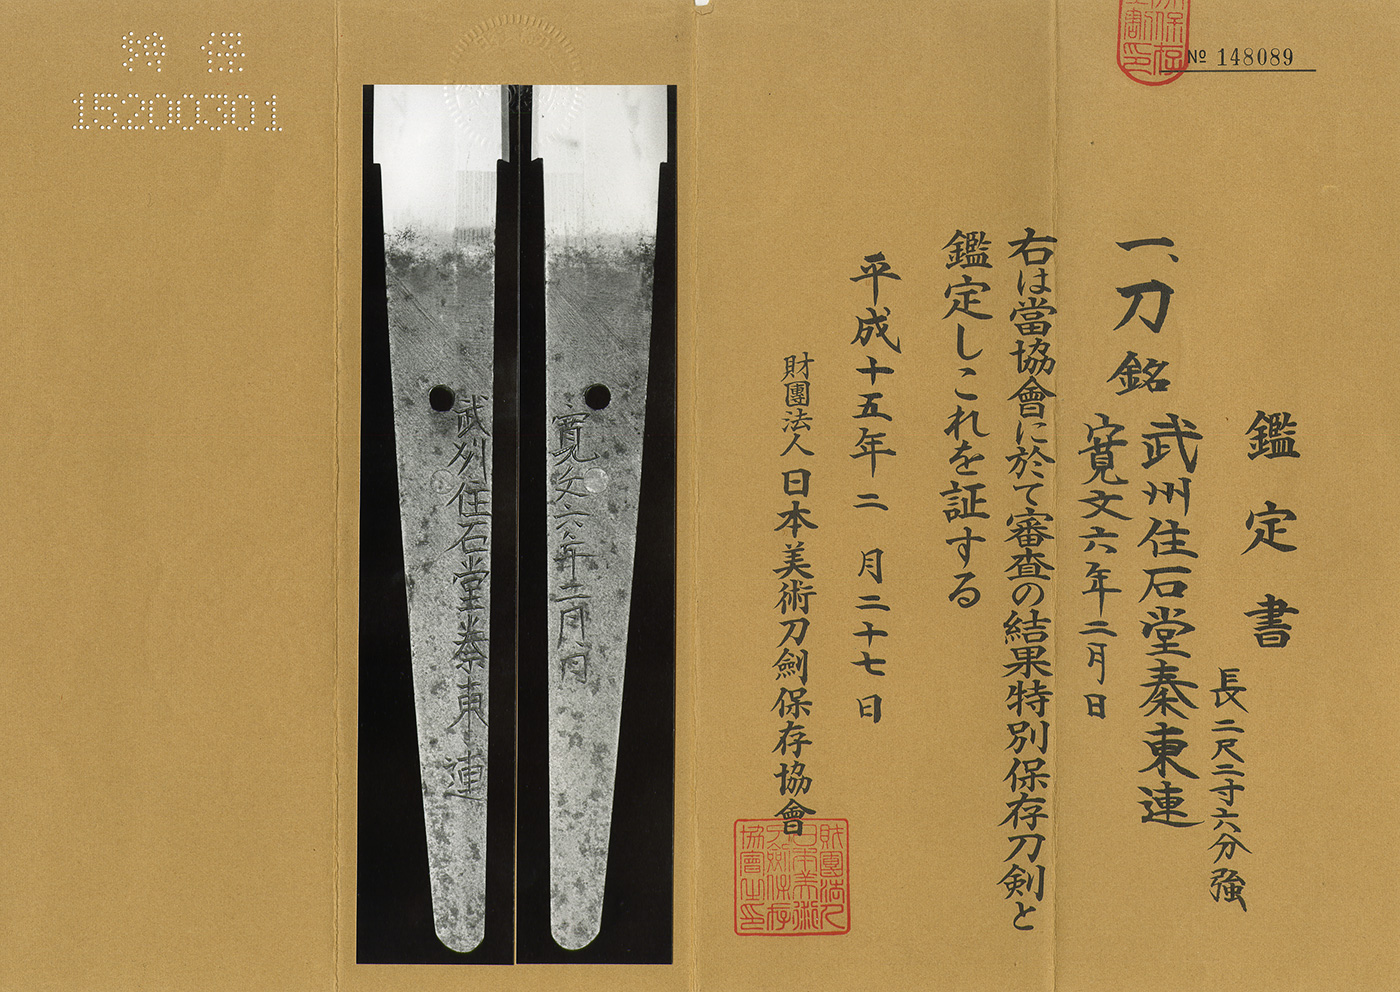 № 148089
鑑定書
一、刀 銘 武州住石堂秦東連
寛文六年二月日
長二尺二寸六分強
右は當協會に於て審査の結果特別保存刀剣と
鑑定しこれを証する
平成十五年二月二十七日
財團法人 日本美術刀劍保存協會
財團法人
日本美術
刀劍保存
協會之印
寛文六年二月日
武州住石堂秦東連
特保
15200301